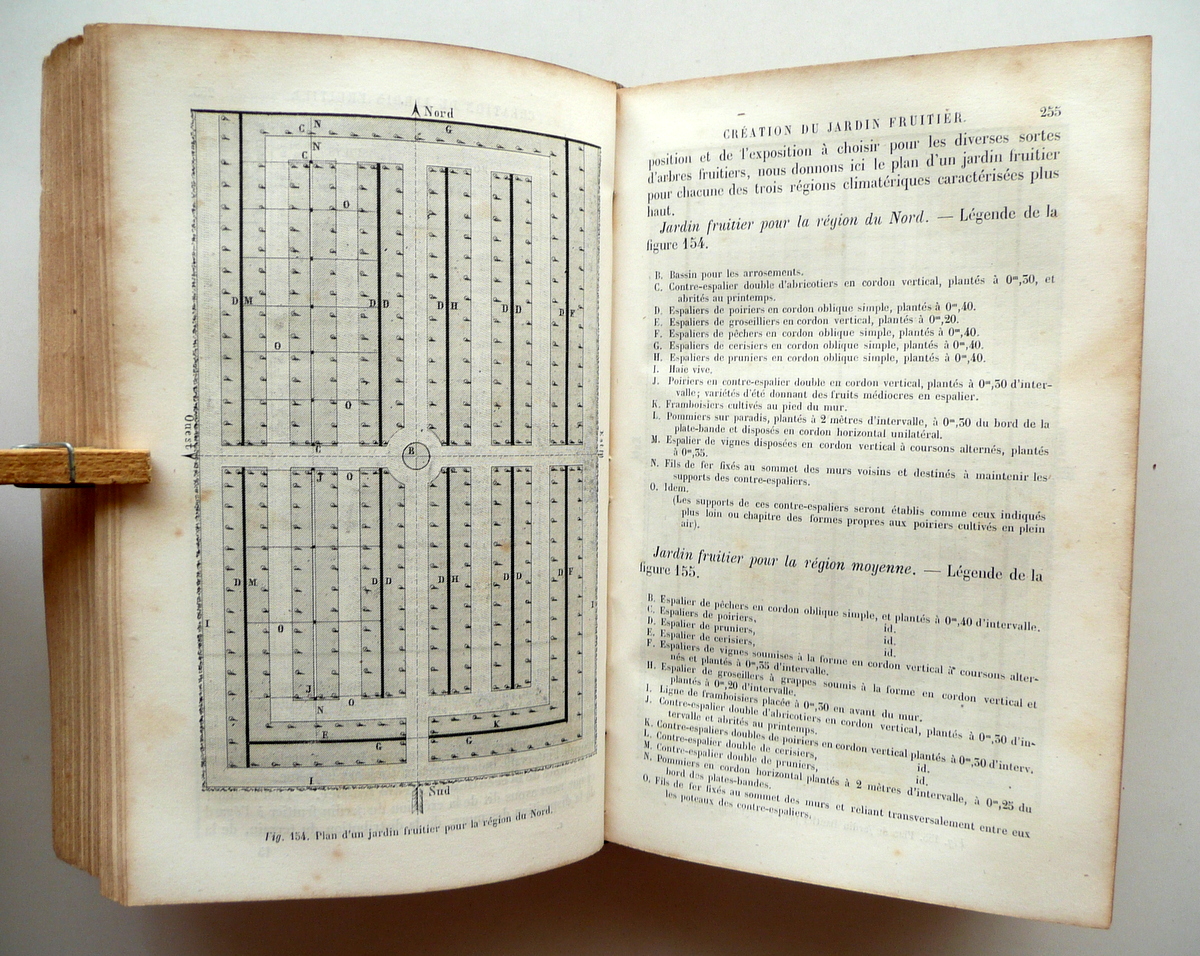 Nord
C N G
N
C
O
D M D D D H D D D F
O
O
Ouest
G
B
J O
D M D D D H D D D F
I I
O
J
N O
E K
G G
I
Sud
Fig. 154. Plan d'un jardin fruitier pour la région du Nord.
CRÉATION DU JARDIN FRUITIER. 255
position et de l'exposition à choisir pour les diverses sortes
d'arbres fruitiers, nous donnons ici le plan d'un jardin fruitier
pour chacune des trois régions climatériques caractérisées plus
haut.
Jardin fruitier pour la région du Nord. — Légende de la
figure 154.
B. Bassin pour les arrosements.
C. Contre-espalier double d'abricotiers en cordon vertical, plantés à 0m,30, et
abrités au printemps.
D. Espaliers de poiriers en cordon oblique simple, plantés à 0m,40.
E. Espaliers de groseilliers en cordon vertical, plantés à 0m,20.
F. Espaliers de pêchers en cordon oblique simple, plantés à 0m,40.
G. Espaliers de cerisiers en cordon oblique simple, plantés à 0m,40.
H. Espaliers de pruniers en cordon oblique simple, plantés à 0m,40.
I. Haie vive.
J. Poiriers en contre-espalier double en cordon vertical, plantés à 0m,30 d'inter-
valle; variétés d'été donnant des fruits médiocres en espalier.
K. Framboisiers cultivés au pied du mur.
L. Pommiers sur paradis, plantés à 2 mètres d'intervalle, à 0m,30 du bord de la
plate-bande et disposés en cordon horizontal unilatéral.
M. Espalier de vignes disposées en cordon vertical à coursons alternés, plantés
à 0m,35.
N. Fils de fer fixés au sommet des murs voisins et destinés à maintenir les
supports des contre-espaliers.
O. Idem.
(Les supports de ces contre-espaliers seront établis comme ceux indiqués
plus loin ou chapitre des formes propres aux poiriers cultivés en plein
air).
Jardin fruitier pour la région moyenne. — Légende de la
figure 155.
B. Espalier de pêchers en cordon oblique simple, et plantés à 0m,40 d'intervalle.
C. Espaliers de poiriers, id.
D. Espalier de pruniers, id.
E. Espalier de cerisiers, id.
F. Espaliers de vignes soumises à la forme en cordon vertical à coursons alter-
nés et plantés à 0m,35 d'intervalle.
H. Espalier de groseillers à grappes soumis à la forme en cordon vertical et
plantés à 0m,20 d'intervalle.
I. Ligne de framboisiers placée à 0m,30 en avant du mur.
J. Contre-espalier double d'abricotiers en cordon vertical, plantés à 0m,30 d'in-
tervalle et abrités au printemps.
K. Contre-espaliers doubles de poiriers en cordon vertical plantés à 0m,30 d'interv.
L. Contre-espalier double de cerisiers, id.
M. Contre-espalier double de pruniers, id.
N. Pommiers en cordon horizontal plantés à 2 mètres d'intervalle, à 0m,25 du
bord des plates-bandes.
O. Fils de fer fixés au sommet des murs et reliant transversalement entre eux
les poteaux des contre-espaliers.